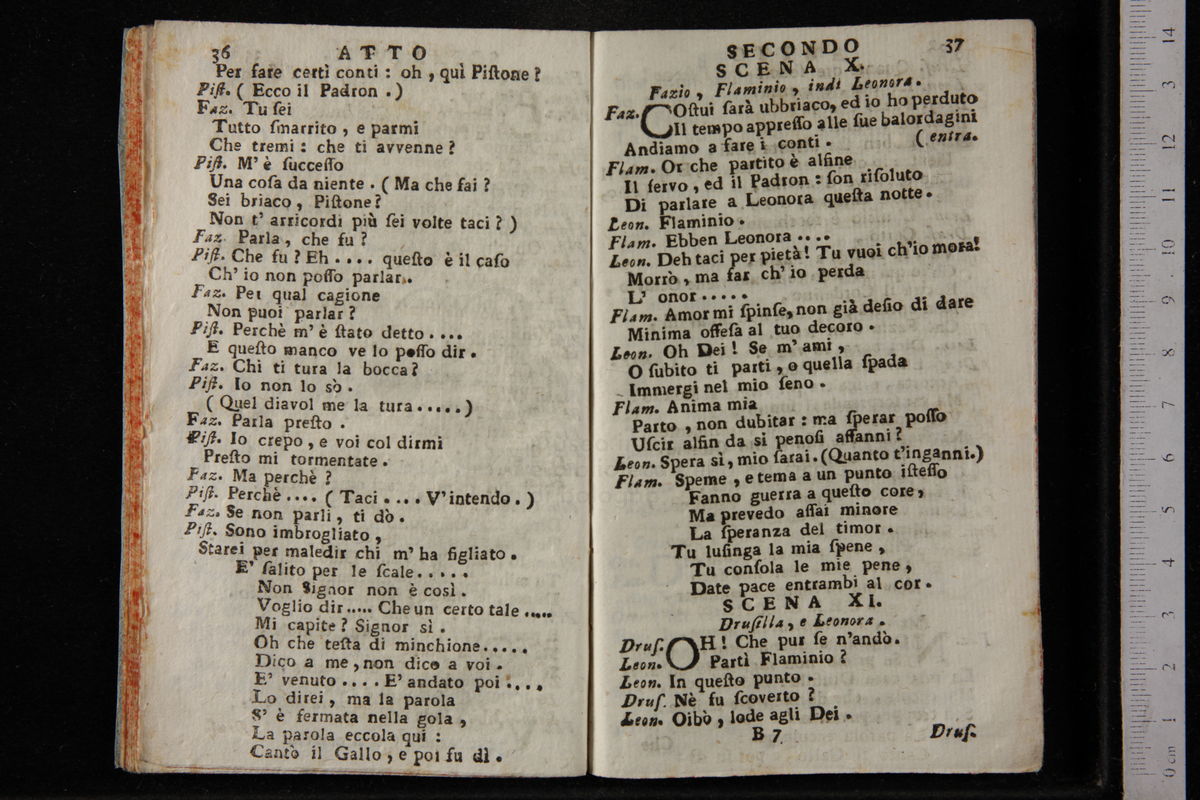 36 ATTO
Per fare certi conti : oh , quì Piſtone ?
Piſt. ( Ecco il Padron . )
Faz. Tu ſei
Tutto ſmarrito , e parmi
Che tremi : che ti avvenne ?
Piſt. M' è ſucceſſo
Una coſa da niente . ( Ma che fai ?
Sei briaco , Piſtone ?
Non t' arricordi più ſei volte taci ? )
Faz. Parla , che fu ?
Piſt. Che fu ? Eh . . . . queſto è il caſo
Ch' io non poſſo parlar .
Faz. Per qual cagione
Non puoi parlar ?
Piſt. Perchè m' è ſtato detto . . . .
E queſto manco ve lo poſſo dir .
Faz. Chi ti tura la bocca ?
Piſt. Io non lo sò .
( Quel diavol me la tura . . . . . )
Faz. Parla preſto .
Piſt. Io crepo , e voi col dirmi
Preſto mi tormentate .
Faz. Ma perchè ?
Piſt. Perchè . . . . ( Taci . . . . V' intendo . )
Faz. Se non parli , ti dò .
Piſt. Sono imbrogliato ,
Starei per maledir chi m' ha figliato .
E' ſalito per le ſcale . . . . .
Non Signor non è così .
Voglio dir ..... Che un certo tale .....
Mi capite ? Signor sì .
Oh che teſta di minchione . . . . .
Dico a me , non dico a voi .
E' venuto . . . . E' andato poi . . . .
Lo direi , ma la parola
S' è fermata nella gola ,
La parola eccola quì :
Cantò il Gallo , e poi fu dì .
SECONDO 37
SCENA X.
Fazio , Flaminio , indi Leonora .
Faz. COſtui ſarà ubbriaco, ed io ho perduto
Il tempo appreſſo alle ſue balordagini
Andiamo a fare i conti . ( entra.
Flam. Or che partito è alfine
Il ſervo , ed il Padron : ſon riſoluto
Di parlare a Leonora queſta notte .
Leon. Flaminio .
Flam. Ebben Leonora . . . .
Leon. Deh taci per pietà ! Tu vuoi ch'io mora!
Morrò , ma far ch' io perda
L' onor . . . . .
Flam. Amor mi ſpinſe, non già deſio di dare
Minima offeſa al tuo decoro .
Leon. Oh Dei ! Se m' ami ,
O ſubito ti parti , o quella ſpada
Immergi nel mio ſeno .
Flam. Anima mia
Parto , non dubitar : ma ſperar poſſo
Uſcir alfin da si penoſi affanni ?
Leon. Spera sì , mio ſarai . (Quanto t'inganni.)
Flam. Speme , e tema a un punto iſteſſo
Fanno guerra a queſto core ,
Ma prevedo aſſai minore
La ſperanza del timor .
Tu luſinga la mia ſpene ,
Tu conſola le mie pene ,
Date pace entrambi al cor .
SCENA XI.
Druſilla , e Leonora .
Druſ. OH ! Che pur ſe n'andò.
Leon. Partì Flaminio ?
Leon. In queſto punto .
Druſ. Nè fu ſcoverto ?
Leon. Oibò , lode agli Dei .
B 7 Druſ.
0 cm 1 2 3 4 5 6 7 8 9 10 11 12 3 14